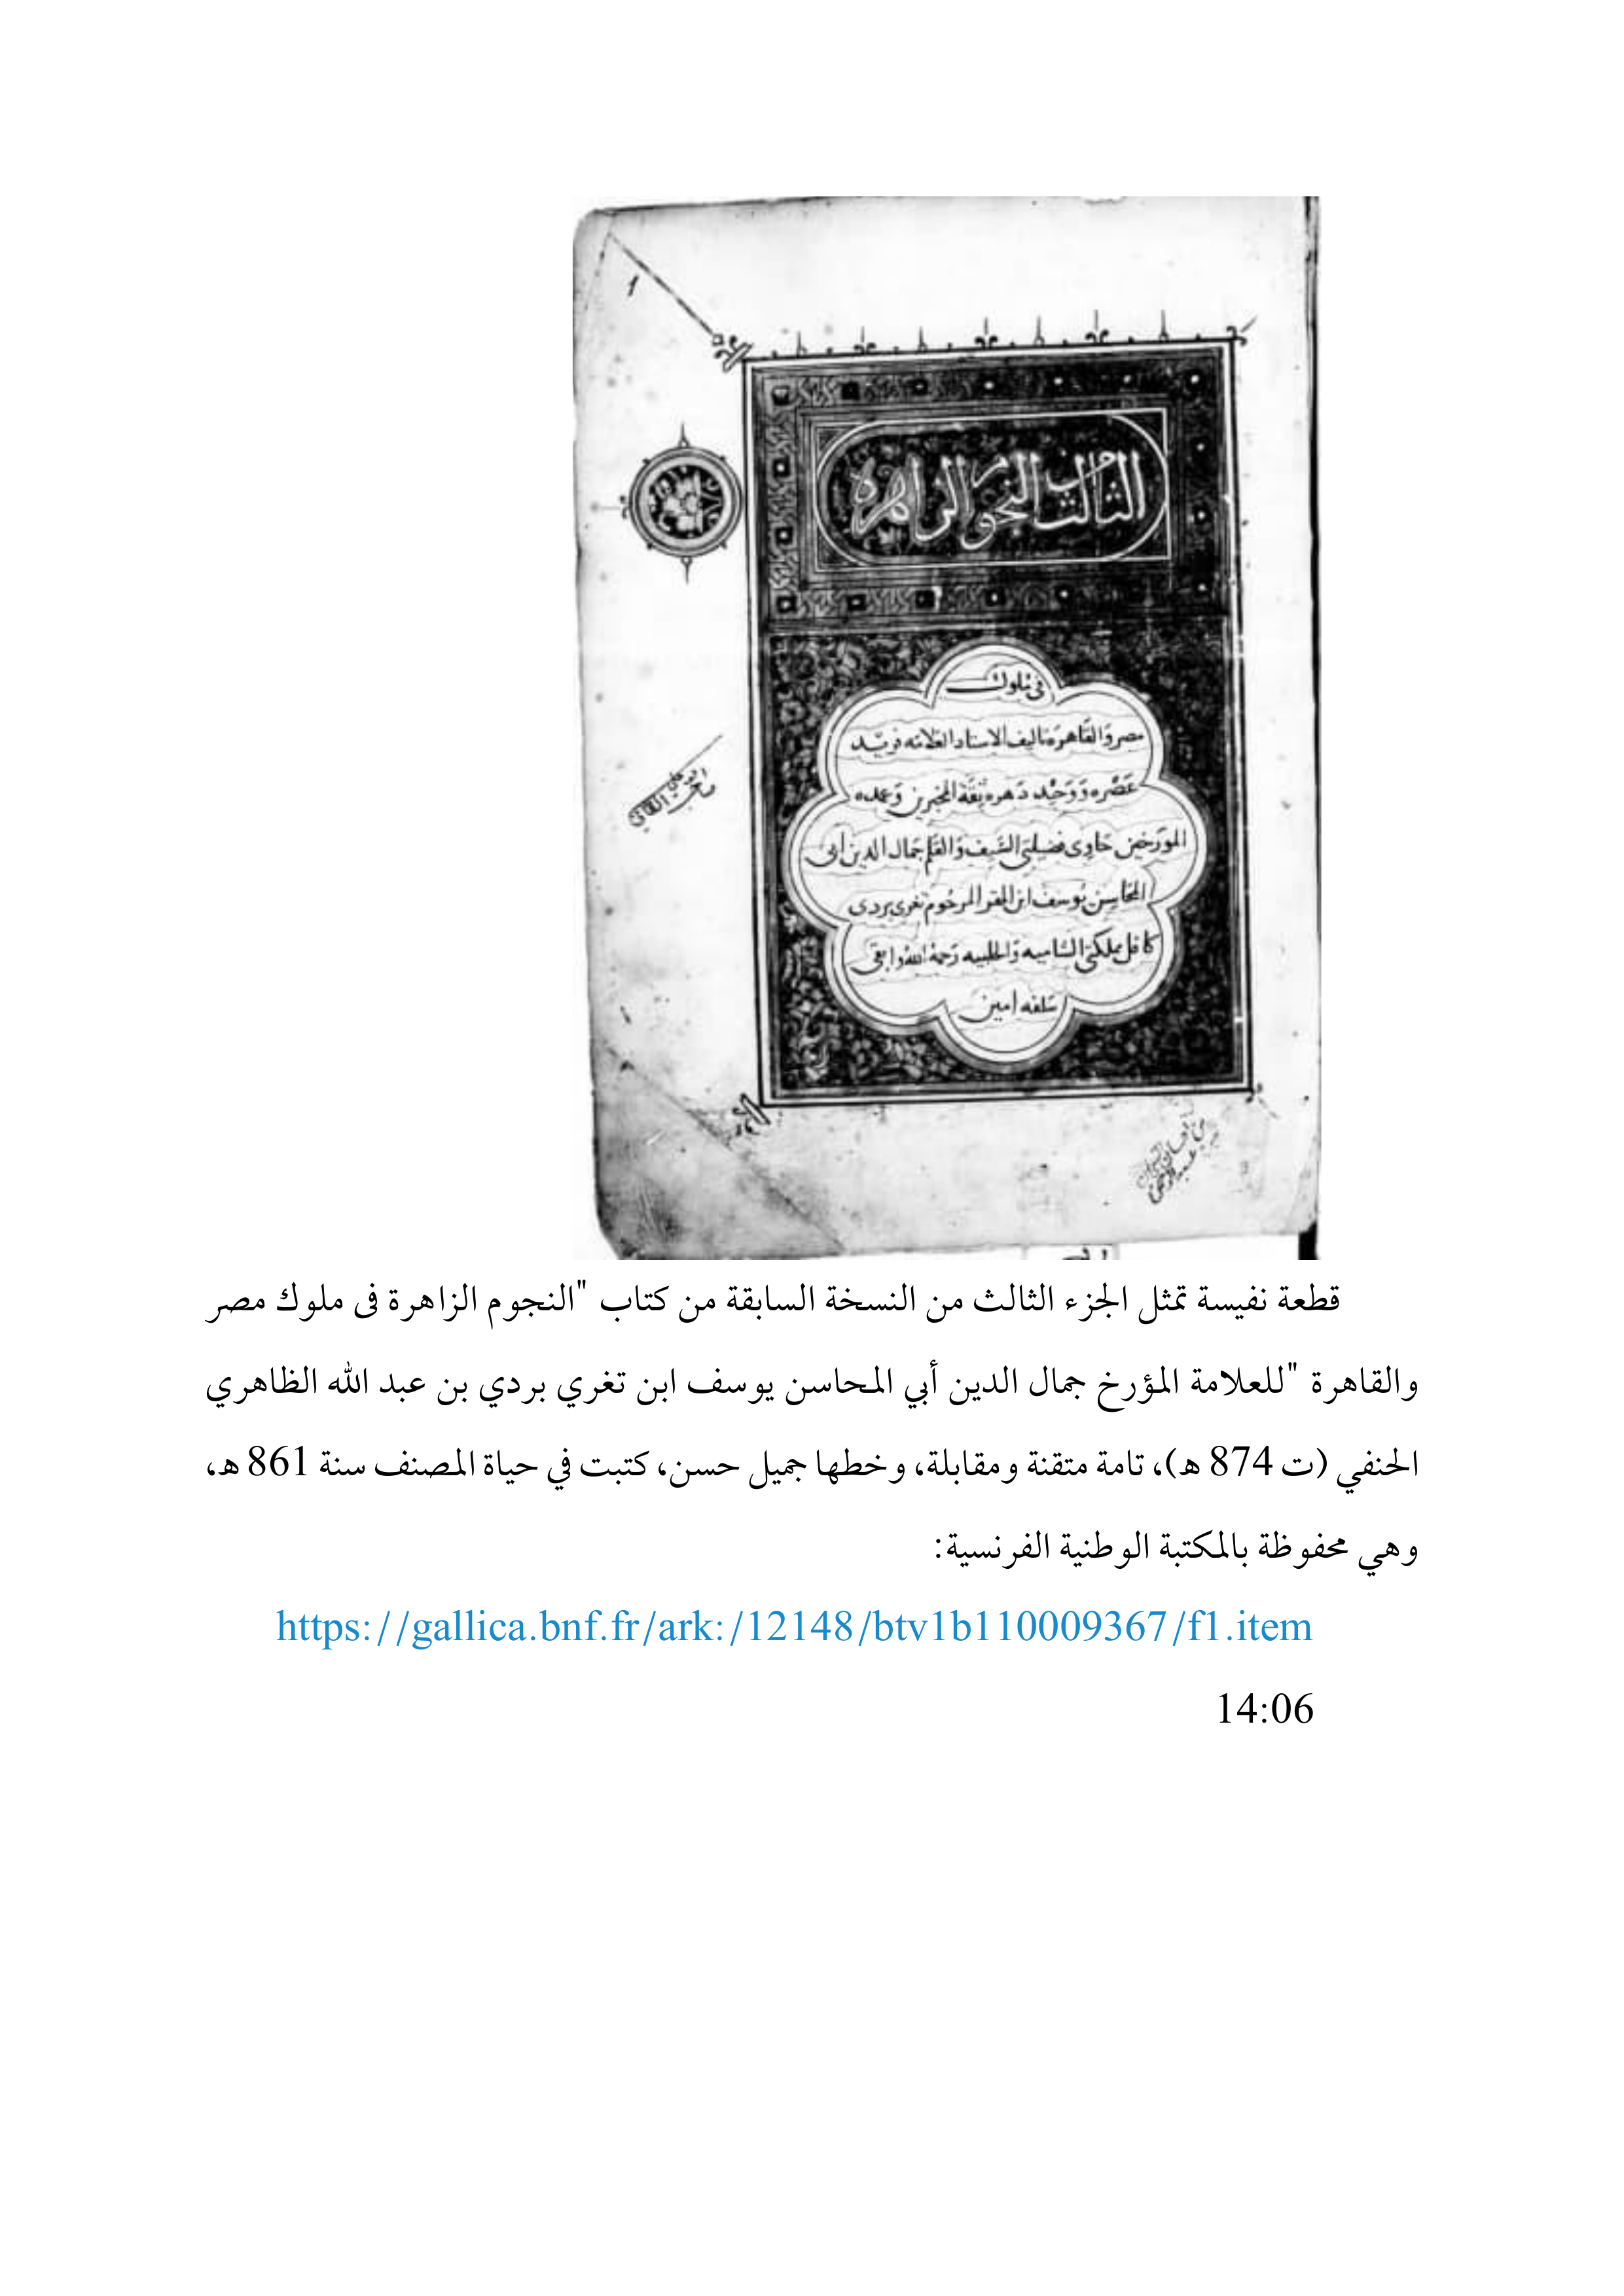 ١
الثالث من النجوم الزاهره
فى ملوك
مصر والقاهرة تاليف الاستاد العلامه فريد
عَصْره وَوَحِيْد دَهره ثقة المخبرين وَعمده
المورخين حَاوى فضيلتى السَّيف وَالقلم جمال الدين ابى
المحَاسِن يُوسف ابن المقر المرحُوم تغرى بردى
كافل مملكتى الشاميه وَالحلبيه رَحمهُ اللهُ وابقى
سَلفه امين
قطعة نفيسة تمثل الجزء الثالث من النسخة السابقة من كتاب "النجوم الزاهرة فى ملوك مصر
والقاهرة "للعلامة المؤرخ جمال الدين أبي المحاسن يوسف ابن تغري بردي بن عبد الله الظاهري
الحنفي (ت 874 هـ)، تامة متقنة ومقابلة، وخطها جميل حسن، كتبت في حياة المصنف سنة 861 هـ،
وهي محفوظة بالمكتبة الوطنية الفرنسية:
https://gallica.bnf.fr/ark:/12148/btv1b110009367/f1.item
14:06